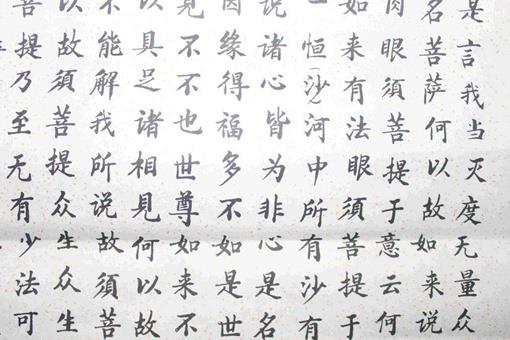 是言我当灭度无量众
名菩萨何以故如来说
肉眼須菩提于意云何
如来有法眼須菩提于
一恒沙河中所有沙有
说诸心皆为非心是名
因缘得福多不如是世
見不不也世尊如来不
以具足诸相見何以故
不能解我所说故須菩
以故須菩提众生众生
菩提乃至无有少法可